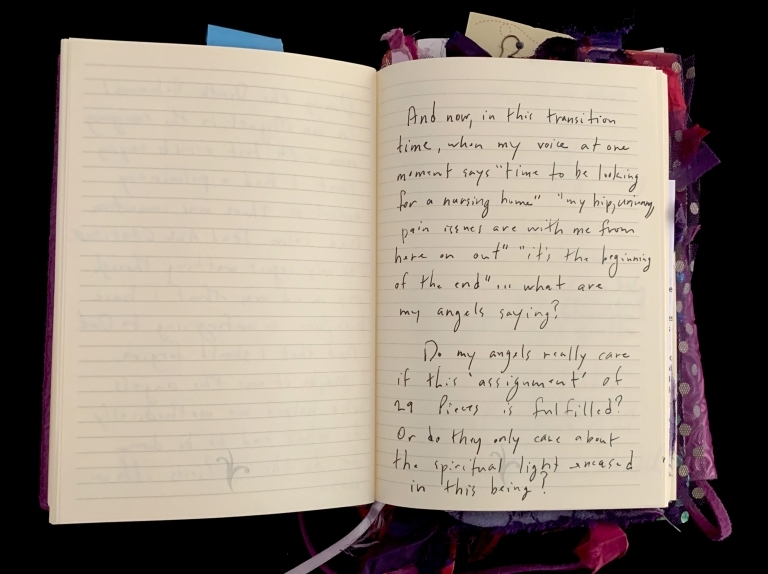 And now, in this transition
time, when my voice at one
moment says "time to be looking
for a nursing home" "my hip, urinary,
pain issues are with me from
here on out" "it's the beginning
of the end"... what are
my angels saying?
Do my angels really care
if this 'assignment' of
29 Pieces is fulfilled?
Or do they only care about
the spiritual light encased
in this being?